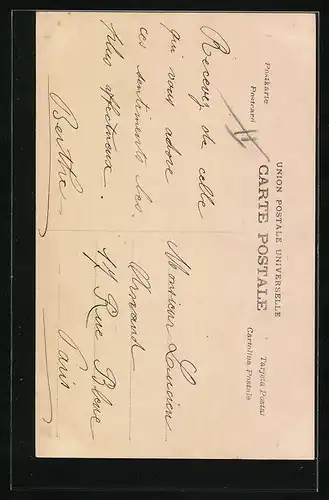 UNION POSTALE UNIVERSELLE
CARTE POSTALE
Postkarte
Postcard
Tarjeta Postal
Cartolina Postale
Recevez de celle
qui vous adore
ces sentiments les
plus affectueux.
Berthe
Monsieur Lucien
17 Rue Bleue
Paris